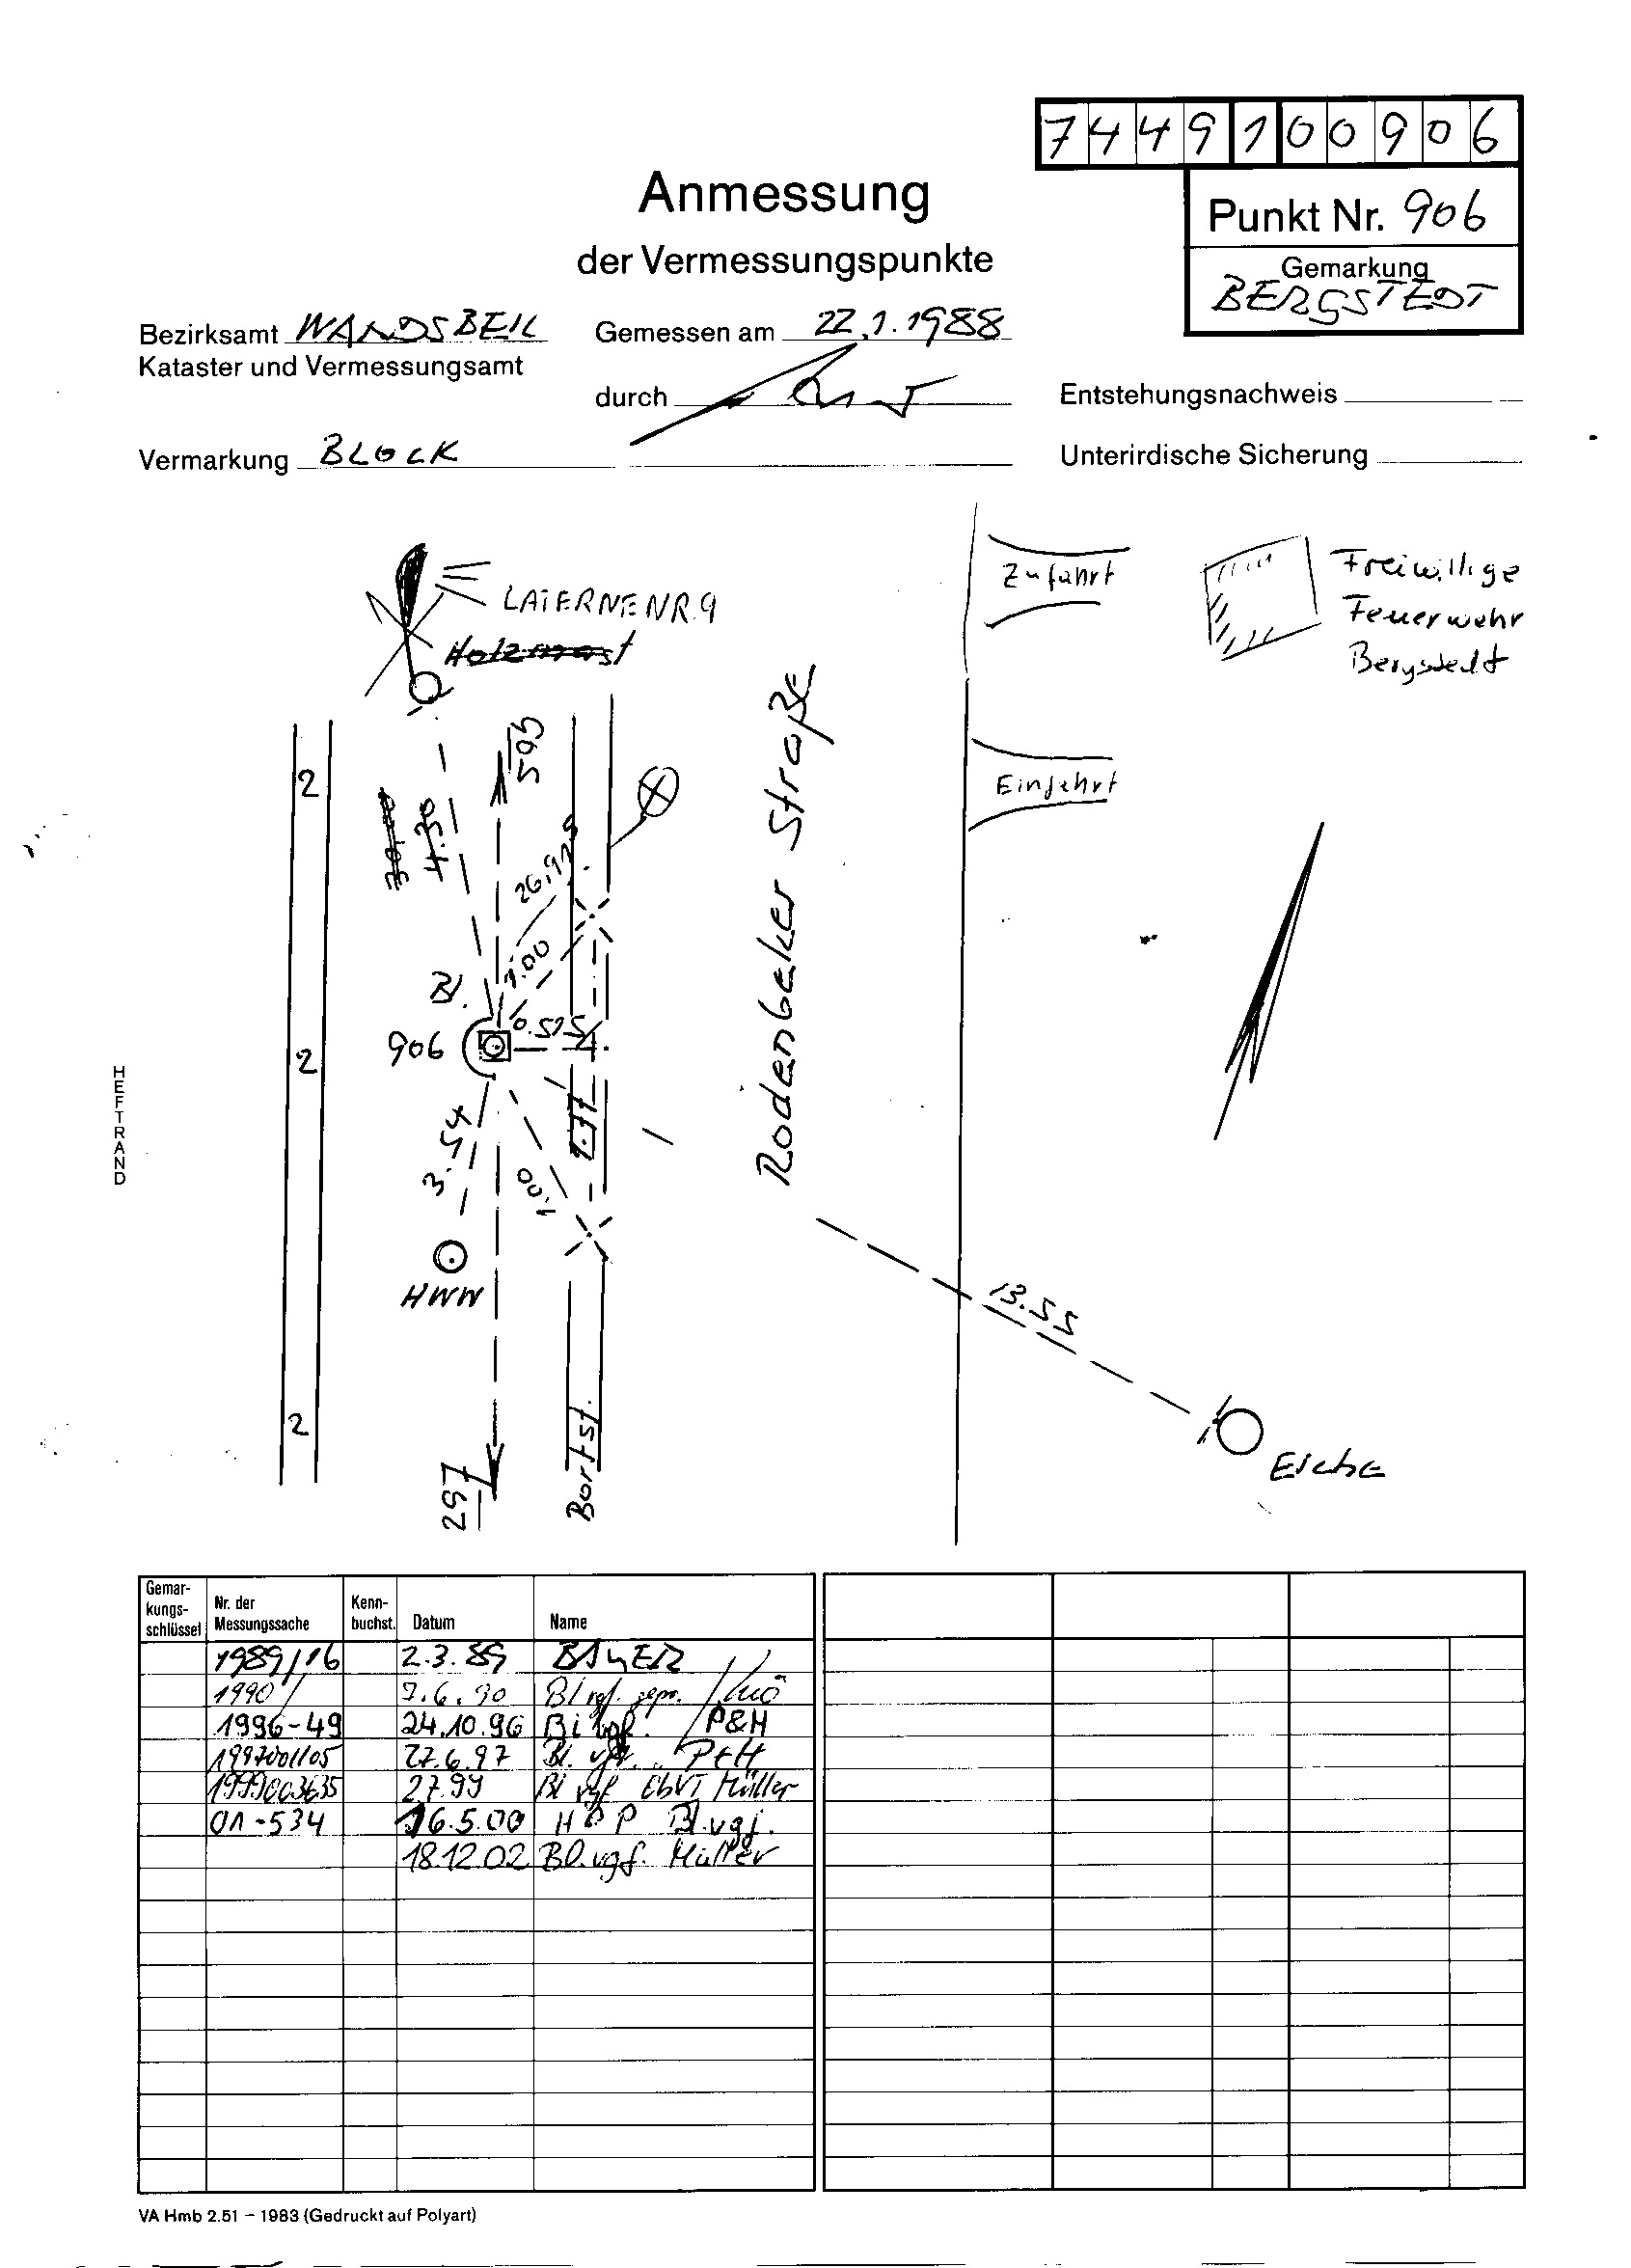 7449100906
Anmessung
der Vermessungspunkte
Punkt Nr. 906
Gemarkung
BERGSTEDT
Bezirksamt WANDSBEK
Gemessen am 22.1.1988
Kataster und Vermessungsamt
durch
Entstehungsnachweis
Vermarkung BLOCK
Unterirdische Sicherung
LATERNE NR.9
Holzmast
Zufahrt
Freiwillige
Feuerwehr
Bergstedt
595
2
30.00
4.30
26,925
Einfahrt
Rodenbeker Straße
1.00
Bl.
906
0.515
2
HEFTRAND
3.54
1.00
HWW
13.55
2
297
Bortst.
Eiche
Gemar-
kungs-
schlüssel
Nr. der
Messungssache
Kenn-
buchst.
Datum
Name
1989/16 2.3.89 BAYER
1990/ 7.6.90 Bl vgf. /
1996-49 24.10.96 Bl vgf. /P&H
1997001105 27.6.97 Bl. vgf. P&H
1999003635 2.7.99 Bl vgf ÖbVI Müller
01-534 16.5.00 H&P Bl.vgf.
18.12.02 Bl.vgf. Müller
VA Hmb 2.51 – 1983 (Gedruckt auf Polyart)